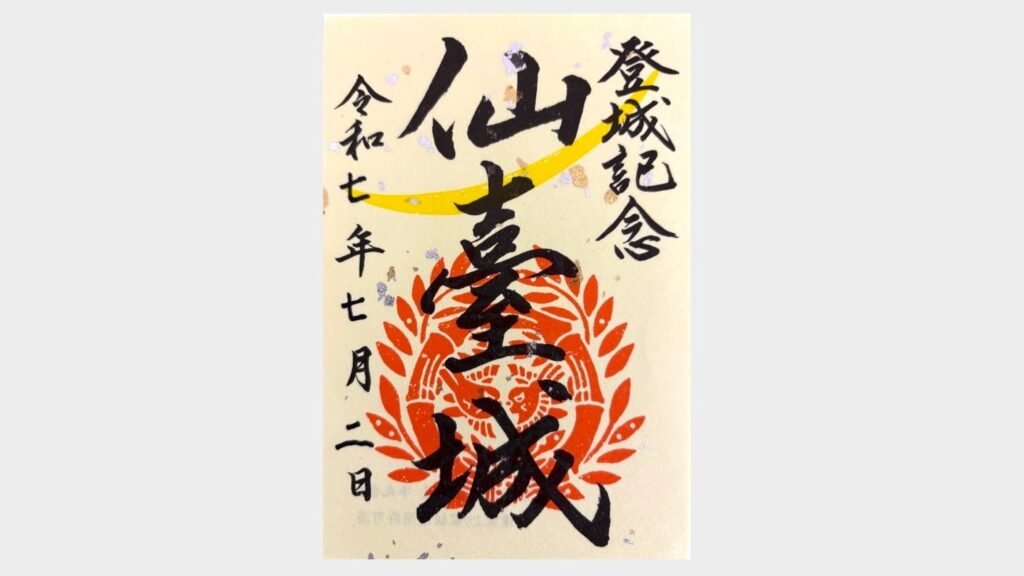 登城記念
仙臺城
令和七年七月二日